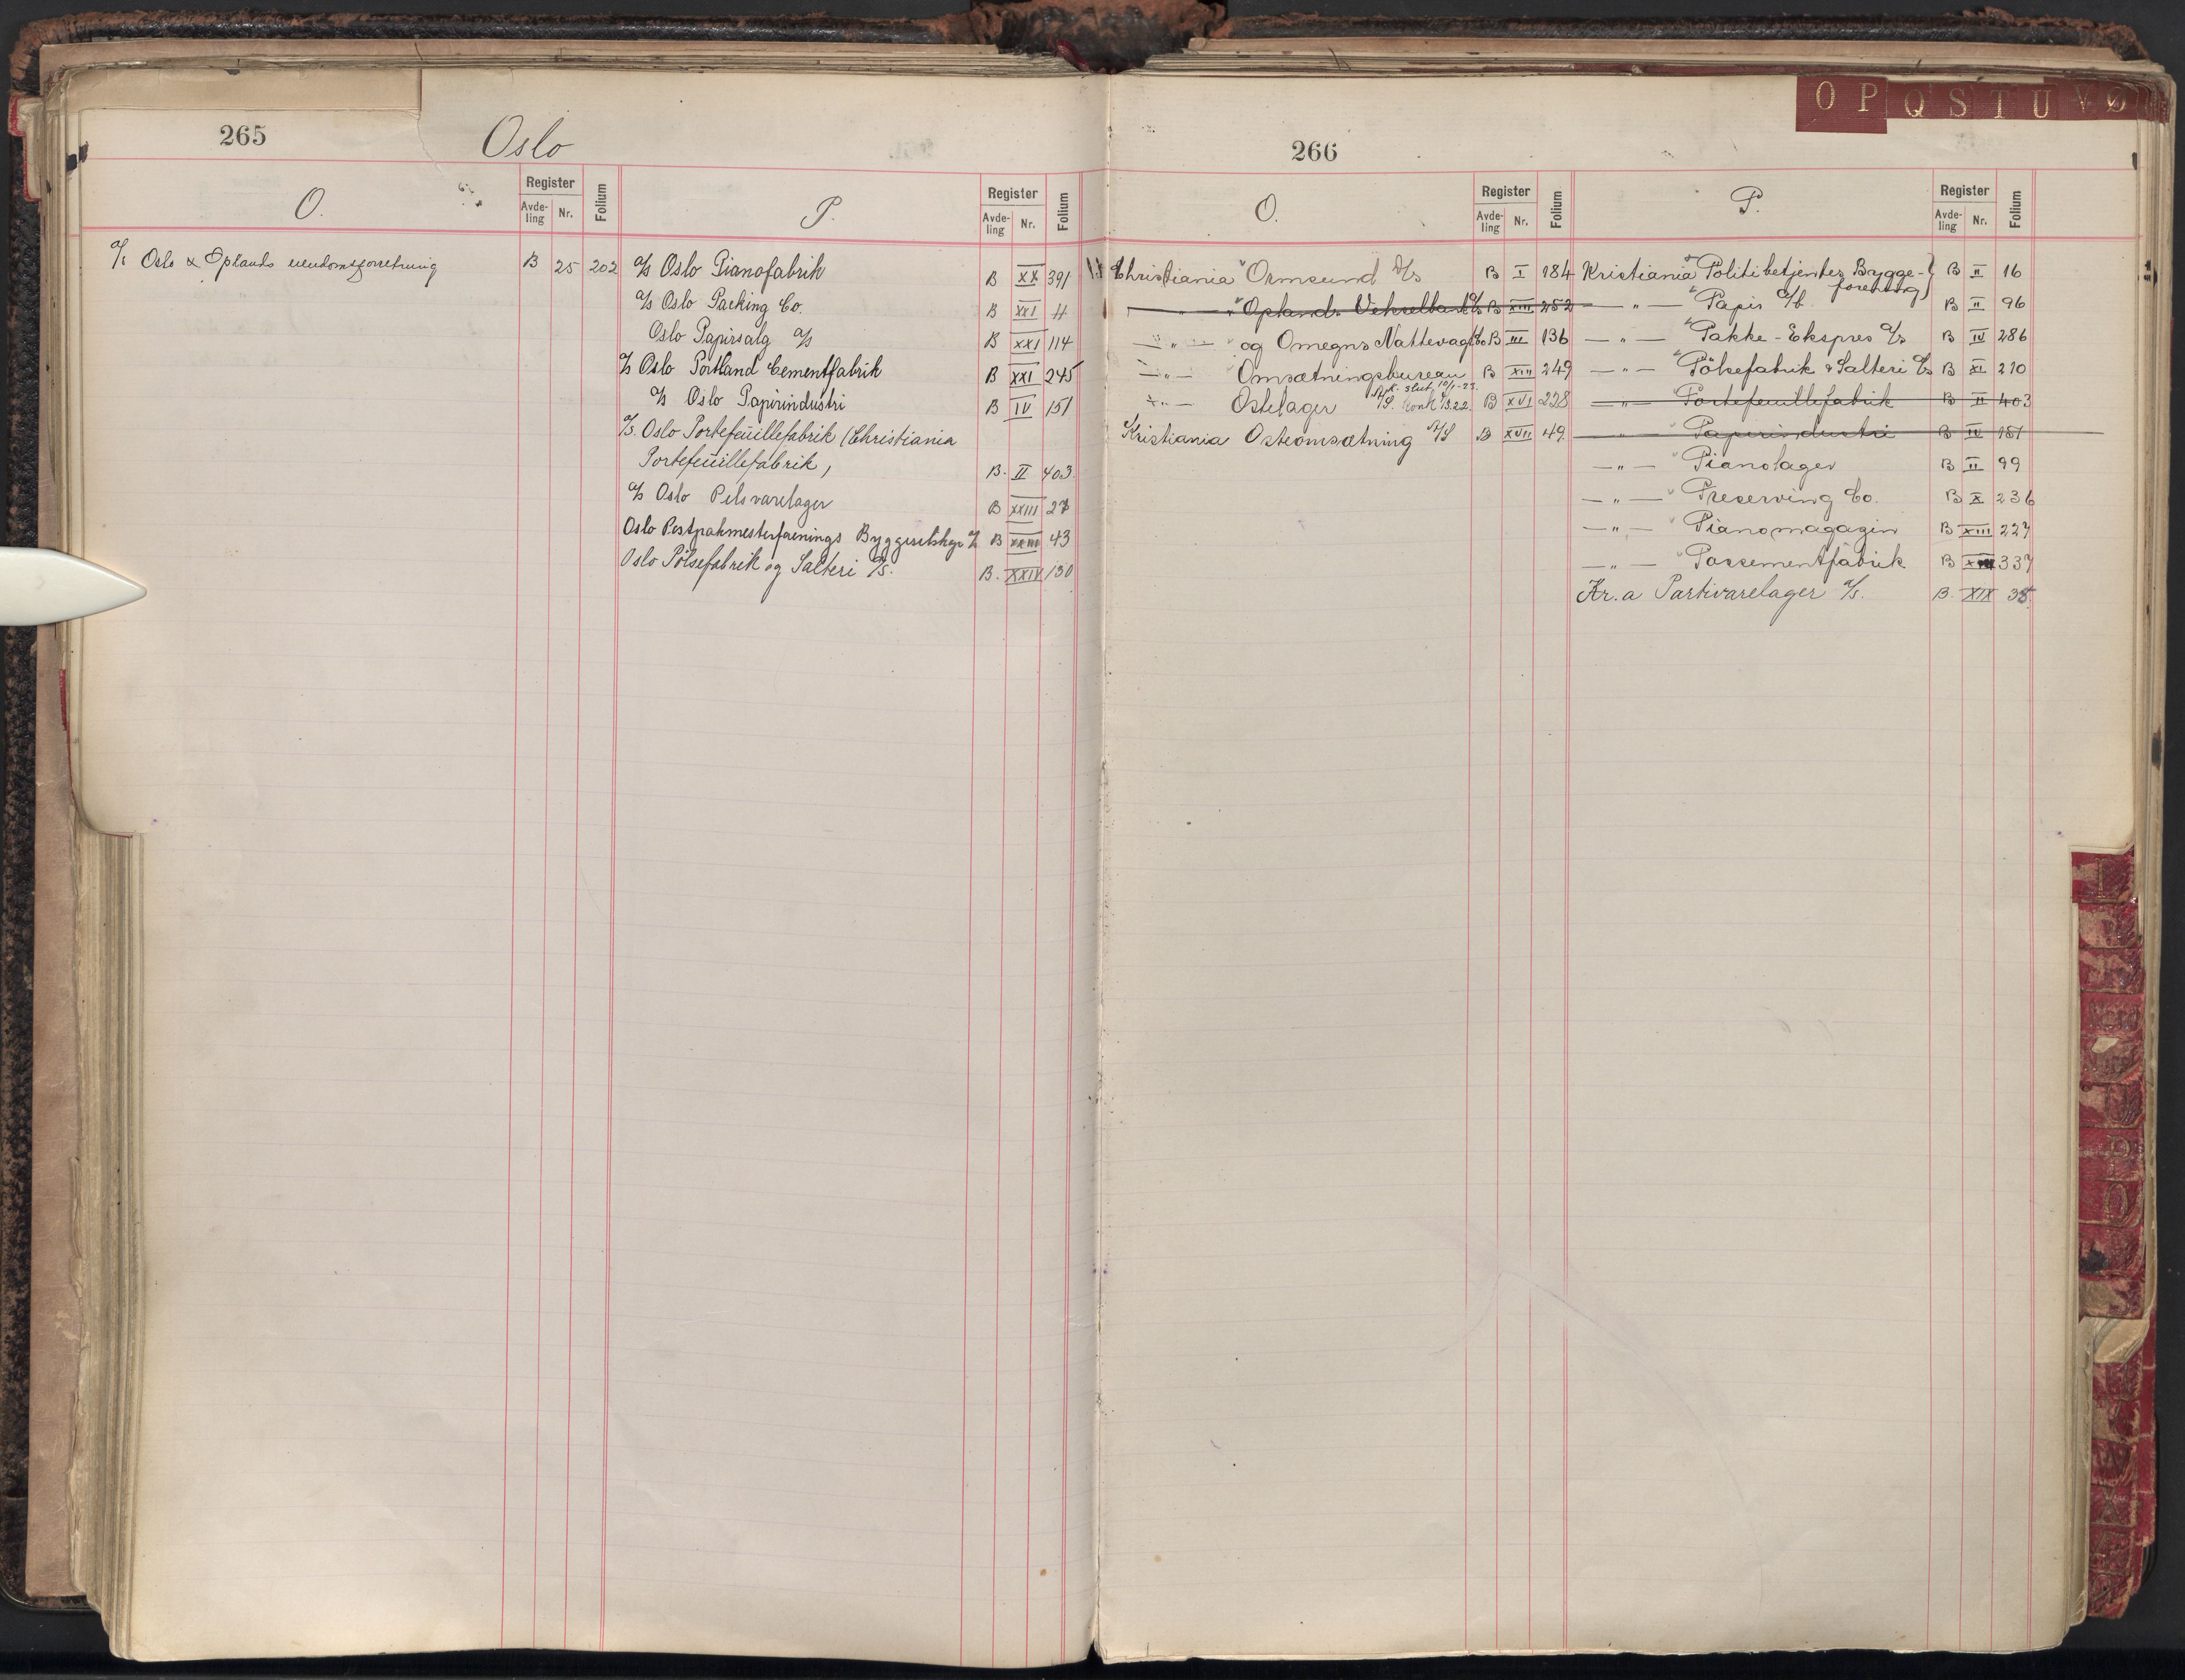 265
Oslo
O.
Register
Avde-
ling
Nr.
Folium
A/s Oslo & Oplands eiendomsforretning B 25 202
P.
Register
Avde-
ling
Nr.
Folium
A/s Oslo Pianofabrik B XX 391
A/s Oslo Packing Co. B XXI 4
Oslo Papirsalg A/s B XXI 114
A/s Oslo Portland Cementfabrik B XXI 245
A/s Oslo Papirindustri B IV 151
A/s. Oslo Portefeuillefabrik (Christiania
Portefeuillefabrik, B. II 403.
A/s Oslo Pelsvarelager B XXIII 27
Oslo Postpakmesterforenings Byggeselskap A/s B XXIII 43
Oslo Pölsefabrik og Salteri A/s. B. XXIV 130
266
O P Q S T U V Ø
O.
Register
Avde-
ling
Nr.
Folium
Christiania Ormsund A/s B I 184
— " — Oplands Vekselbank A/s B XIII 252
— " — og Omegns Nattevagt B III 136
— " — Omsætningsbureau B XIII 249
K. slut. 10/1-23.
— " — Ostelager A/S. Konk. B XVI 228
Kristiania Osteomsætning A/S B XVII 49.
P.
Register
Avde-
ling
Nr.
Folium
Kristiania Politibetjentes Bygge- B II 16
forening
— " — Papir A/s. B II 96
— " — Pakke-Ekspres A/s B IV 286
— " — Pölsefabrik & Salteri A/s B XI 210
— " — Portefeuillefabrik B II 403
— " — Papirindustri B IV 151
— " — Pianolager B II 99
— " — Preserving Co. B X 236
— " — Pianomagazin B XIII 227
— " — Possementfabrik B 337
Kr.a Partivarelager A/s. B. XIX 38.